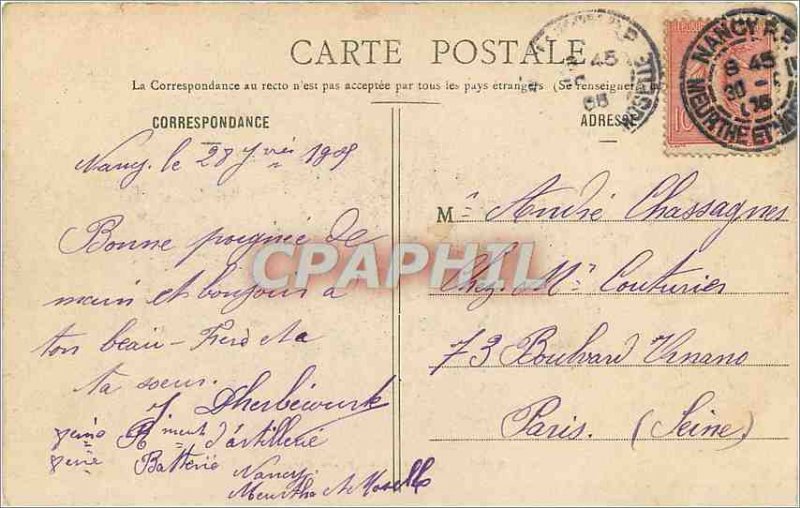 CARTE POSTALE
La Correspondance au recto n'est pas acceptée par tous les pays étrangers (Se renseigner à la
CORRESPONDANCE
ADRESSE
NANCY R.P.
8 45
30
MEURTHE ET MOSELLE
10
Nancy. le 28
Bonne poignée de
main et bonjour à
ton beau-Frère et a
ta soeur.
Dherbécourt
R.ment d'artillerie
Batterie
Nancy
Meurthe et Moselle
Mr André Chassagnes
Chez Mr Couturier
73 Boulvard
Paris. (Seine)
CPAPHIL